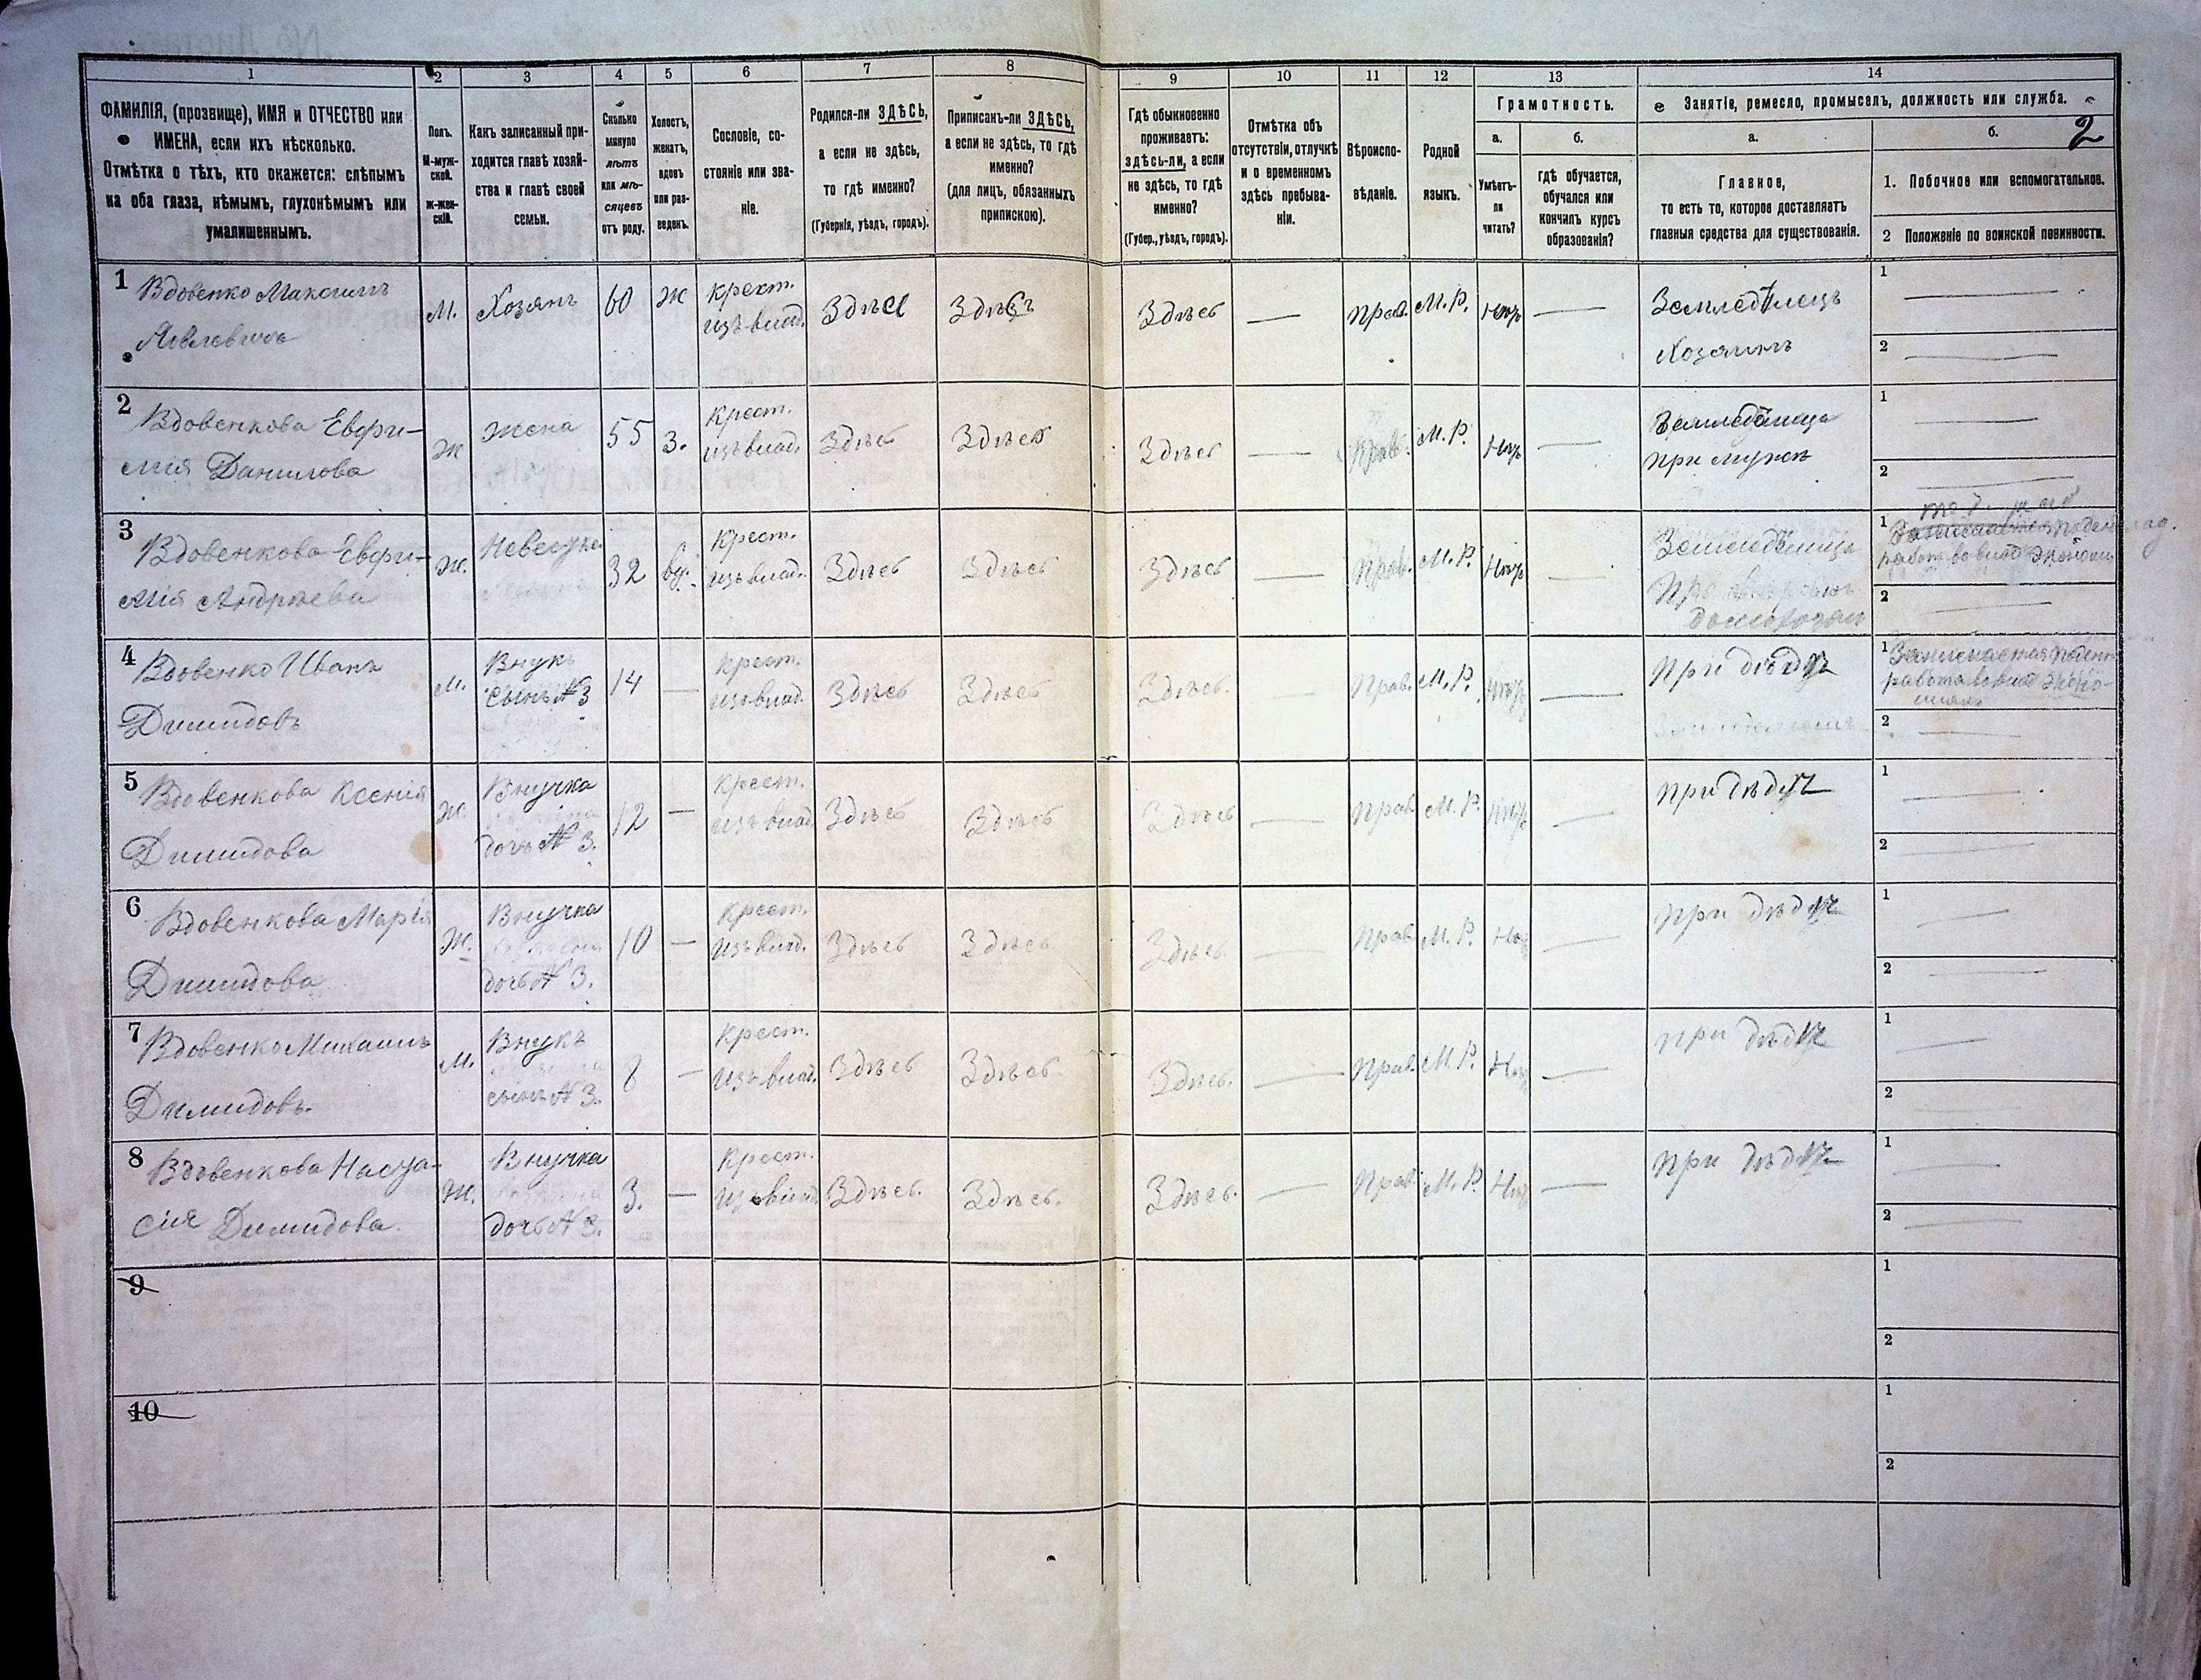 1 2 3 4 5 6 7 8 9 10 11 12 13 14
ФАМИЛІЯ, (прозвище), ИМЯ и ОТЧЕСТВО или
ИМЕНА, если ихъ нѣсколько.
Отмѣтка о тѣхъ, кто окажется: слѣпымъ
на оба глаза, нѣмымъ, глухонѣмымъ или
умалишеннымъ.
Полъ.
М-муж-
ской.
Ж-жен-
скій.
Какъ записанный при-
ходится главѣ хозяй-
ства и главѣ своей
семьи.
Сколько
минуло
лѣтъ
или мѣ-
сяцевъ
отъ роду.
Холостъ,
женатъ,
вдовъ
или раз-
веденъ.
Сословіе, со-
стояніе или зва-
ніе.
Родился-ли ЗДѢСЬ,
а если не здѣсь,
то гдѣ именно?
(Губернія, уѣздъ, городъ).
Приписанъ-ли ЗДѢСЬ,
а если не здѣсь, то гдѣ
именно?
(для лицъ, обязанныхъ
припискою).
Гдѣ обыкновенно
проживаетъ:
здѣсь-ли, а если
не здѣсь, то гдѣ
именно?
(Губер., уѣздъ, городъ).
Отмѣтка объ
отсутствіи, отлучкѣ
и о временномъ
здѣсь пребыва-
ніи.
Вѣроиспо-
вѣданіе.
Родной
языкъ.
Грамотность.
а.
Умѣетъ-
ли
читать?
б.
гдѣ обучается,
обучался или
кончилъ курсъ
образованія?
Занятіе, ремесло, промыселъ, должность или служба.
а.
Главное,
то есть то, которое доставляетъ
главныя средства для существованія.
б.
2
1. Побочное или вспомогательное.
2 Положеніе по воинской повинности.
1 Вдовенко Максимъ
М. Хозяинъ 60 Ж Крест. изъ влад. Здѣсь Здѣсь Здѣсь — Прав. М.Р. — Земледѣлецъ
Хозяинъ
1
2
2 Вдовенкова Евфи-
мія Данилова
Ж Жена 55 З. Крест. изъ влад. Здѣсь Здѣсь Здѣсь — Прав. М.Р. —
при мужѣ
1
2
3 Вдовенкова Евфи-
мія Андрѣева
Ж. Невѣстка 32 вд. Крест. изъ влад. Здѣсь Здѣсь Здѣсь — Прав. М.Р. —
1
2
4 Вдовенко Иванъ
Димидовъ
М. Внукъ
сынъ № 3
14 — Крест. изъ влад. Здѣсь Здѣсь Здѣсь. — Прав. М.Р. — При дѣдѣ
1
2
5 Вдовенкова Ксенія
Димидова
Ж. Внучка
дочь № 3.
12 — Крест. изъ влад. Здѣсь Здѣсь Здѣсь — Прав. М.Р. — При дѣдѣ
1
2
6 Вдовенкова Марія
Димидова
Ж. Внучка
дочь № 3.
10 — Крест. изъ влад. Здѣсь Здѣсь Здѣсь — Прав. М.Р. — При дѣдѣ
1
2
7 Вдовенко Михаилъ
Димидовъ.
М. Внукъ
сынъ № 3.
8 — Крест. изъ влад. Здѣсь Здѣсь Здѣсь. — Прав. М.Р. — при дѣдѣ
1
2
8 Вдовенкова
Димидова.
Ж. Внучка
дочь № 3.
3. — Крест. изъ влад. Здѣсь. Здѣсь. Здѣсь. — Прав. М.Р. — При дѣдѣ
1
2
9
1
2
10
1
2